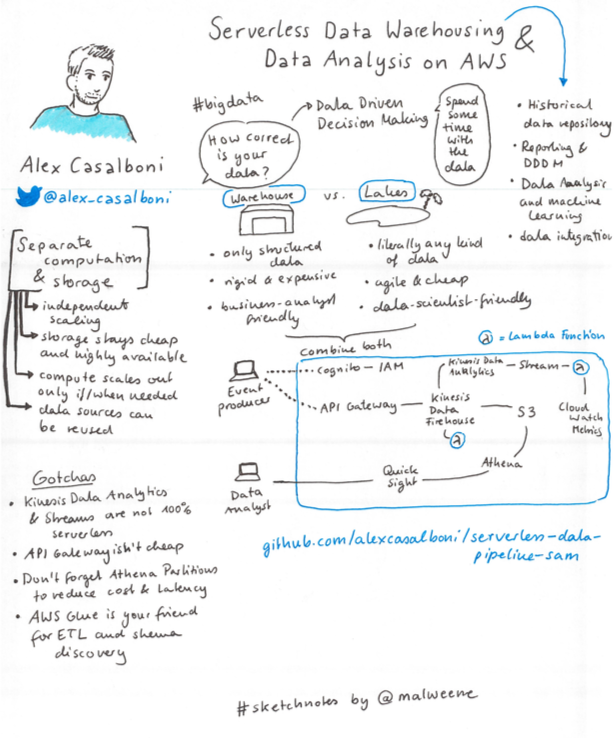 Serverless Data Warehousing &
Data Analysis on AWS
Alex Casalboni
@alex_casalboni
#bigdata
How correct
is your
data?
Data Driven
Decision Making
Spend
some
time
with
the
data
• Historical
data repository
• Reporting &
DDDM
• Data Analysis
and machine
learning
• data integration
Warehouse vs. Lakes
• only structured
data
• rigid & expensive
• business-analyst
friendly
• literally any kind
of data
• agile & cheap
• data-scientist-friendly
combine both
Separate
computation
& storage
independent
scaling
storage stays cheap
and highly available
compute scales out
only if/when needed
data sources can
be reused
λ = Lambda Function
Event
producer
Cognito – IAM
API Gateway
Kinesis Data
Analytics
Stream
λ
Kinesis
Data
Firehouse
λ
S3
Cloud
Watch
Metrics
Data
Analyst
Quick
Sight
Athena
github.com/alexcasalboni/serverless-data-
pipeline-sam
Gotchas
• Kinesis Data Analytics
& Streams are not 100%
serverless
• API Gateway isn't cheap
• Don't forget Athena Partitions
to reduce cost & latency
• AWS Glue is your friend
for ETL and shema
discovery
#sketchnotes by @malweene